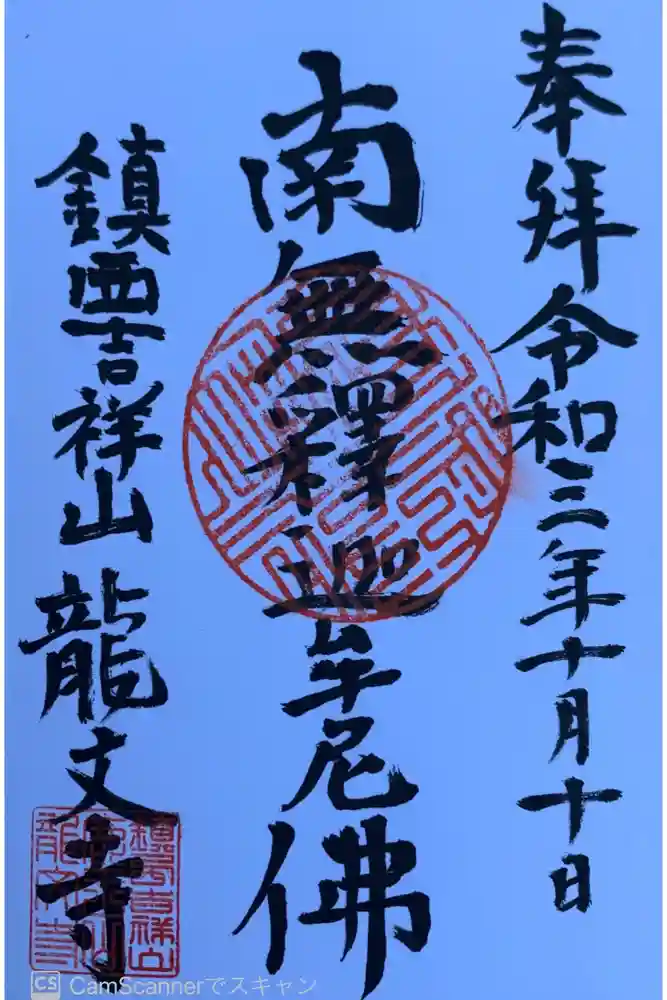 奉拜 令和三年十月十日
南無釋迦牟尼佛
鎮西吉祥山 龍文寺
CS CamScannerでスキャン